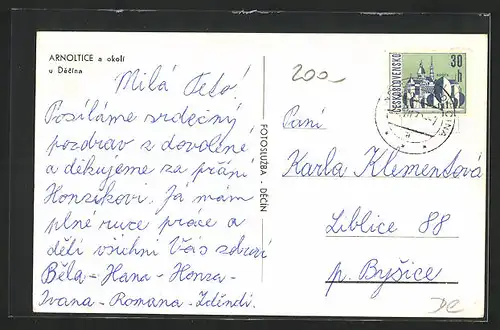 ARNOLTICE a okolí
u Děčína
Milá Teto!
Posíláme srdečný
pozdrav z dovolené
a děkujeme za přání
Honzíkovi. Já mám
plné ruce práce a
děti všichni Vás zdraví
Běla - Hana - Honza -
Ivana - Romana - Zděndi.
FOTOSLUŽBA - DĚČÍN
200
ČESKOSLOVENSKO
30
h
Paní
Karla Klementová
Liblice 88
p. Byšice
DC